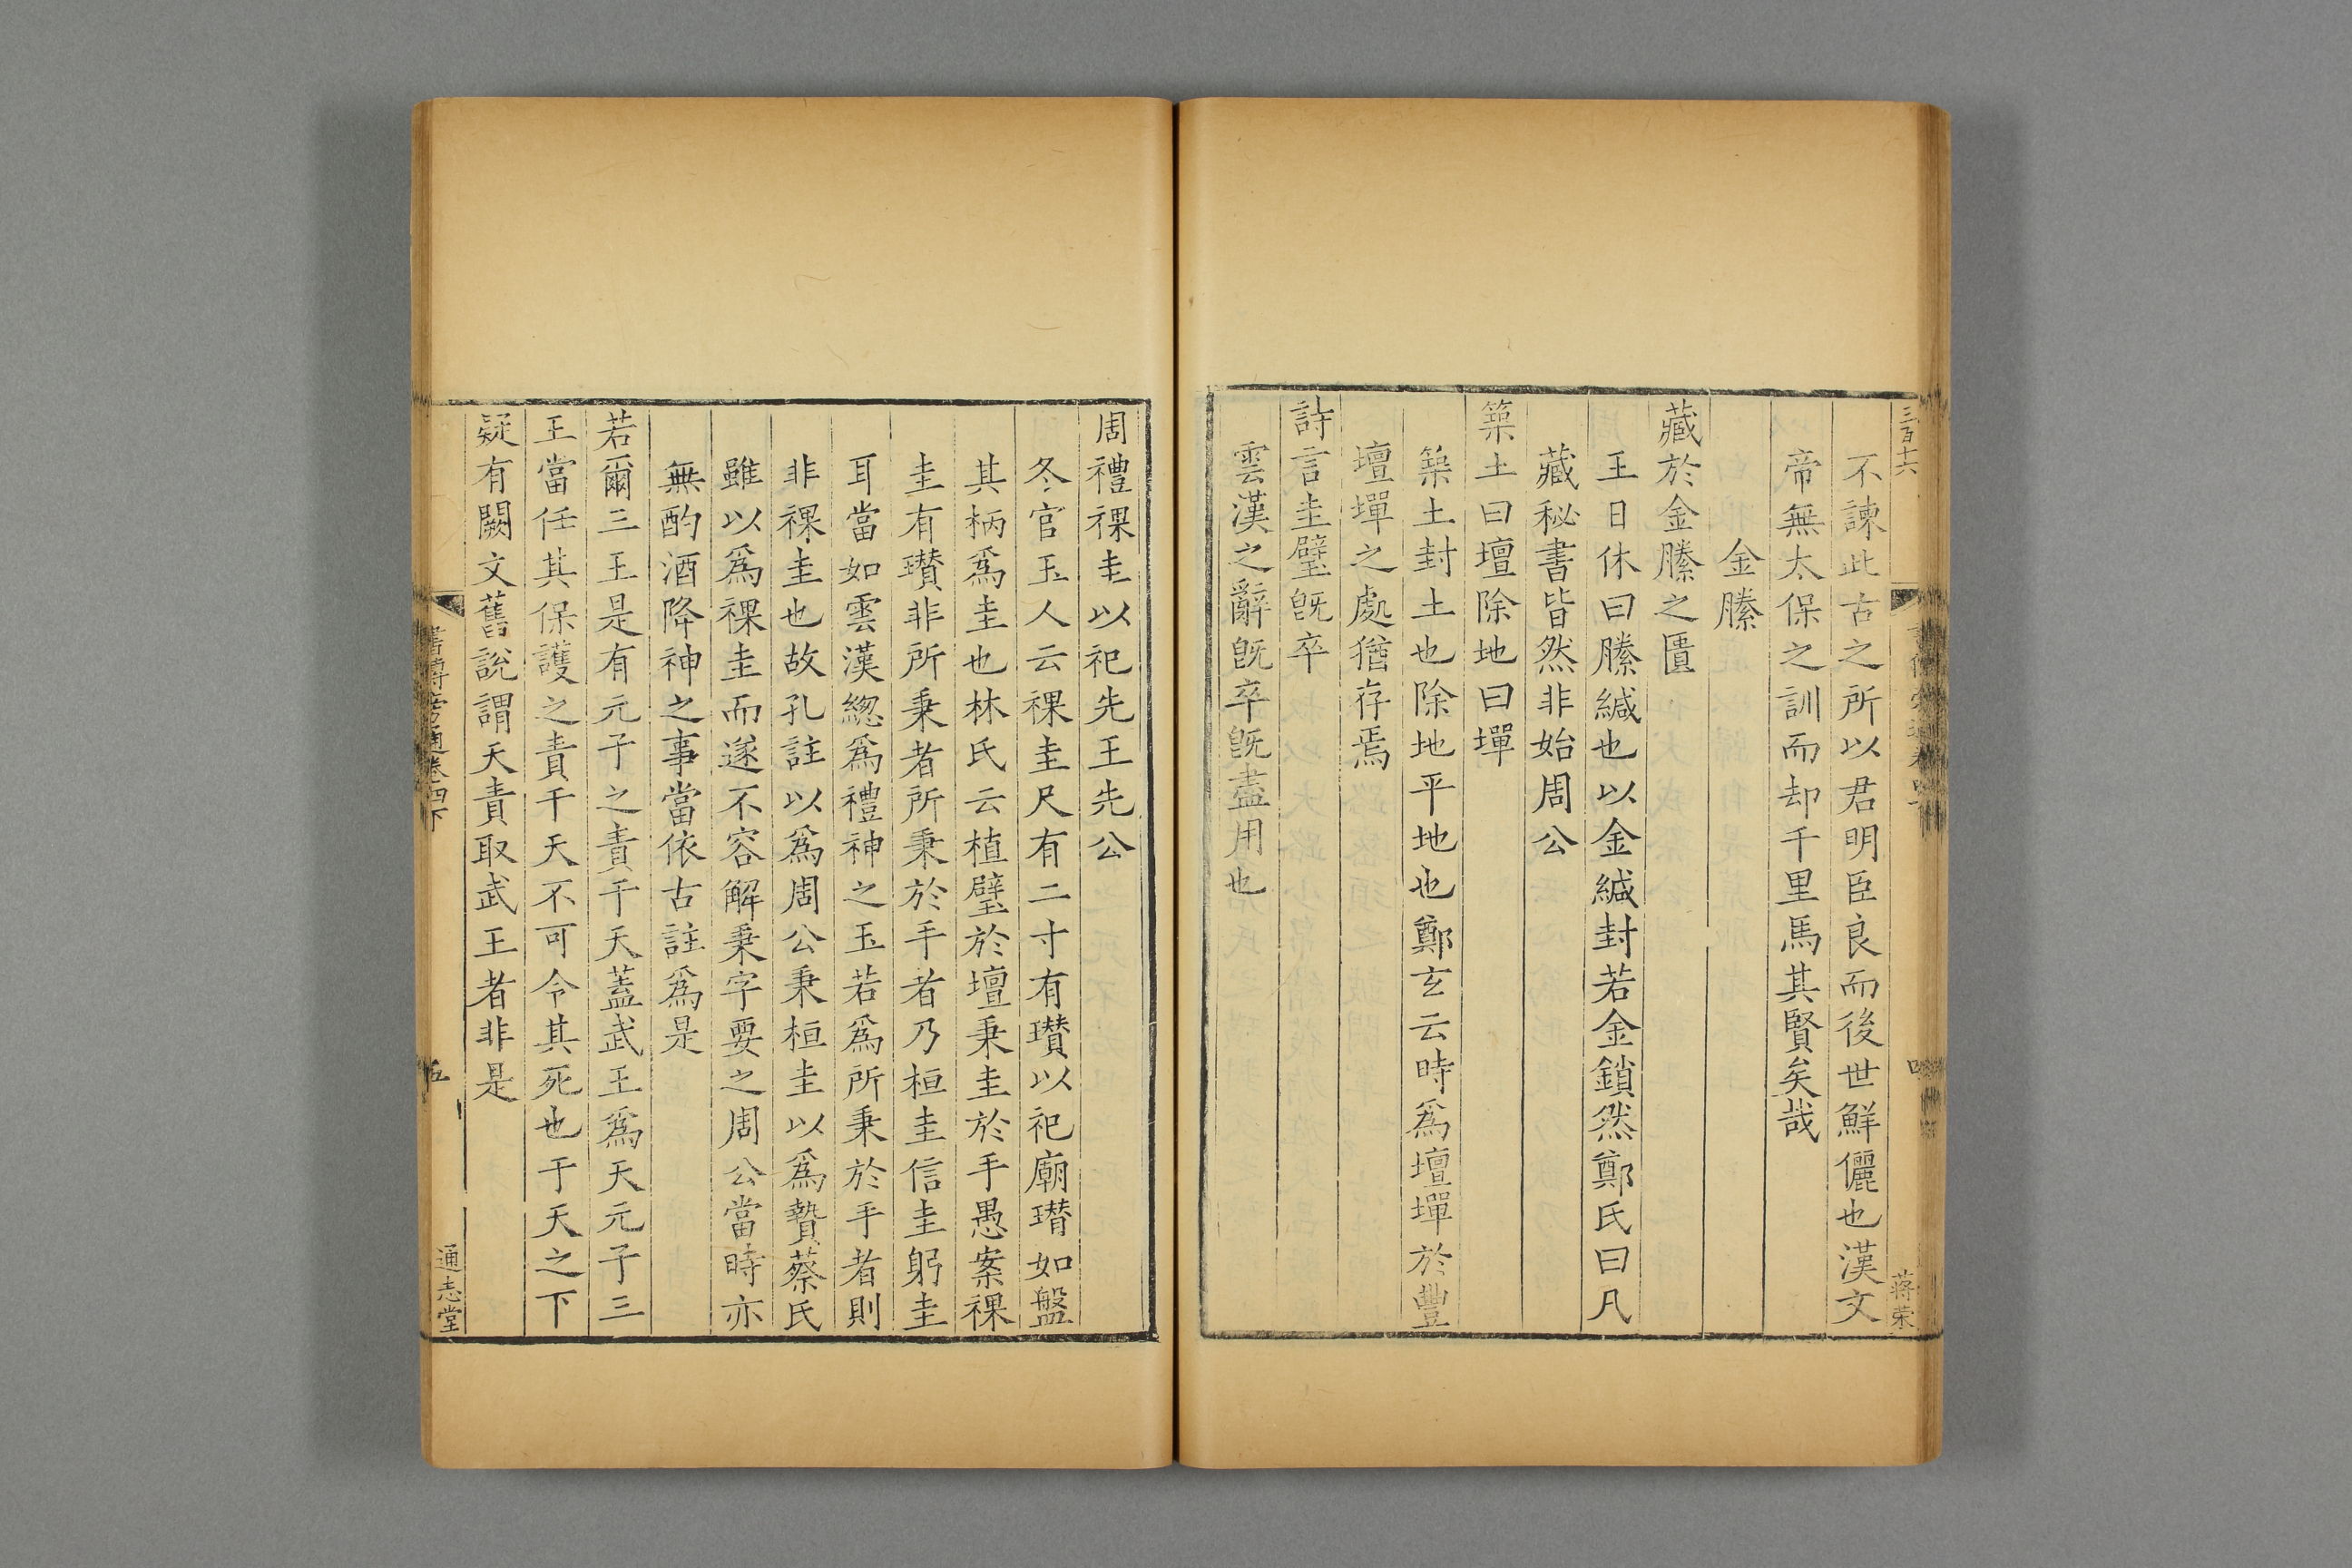 三百十六
蔣荣
不諫此古之所以君明臣良而後世鮮儷也漢文
帝無太保之訓而却千里馬其賢矣哉
金縢
藏於金縢之匱
王日休曰縢緘也以金緘封若金鎖然鄭氏曰凡
藏秘書皆然非始周公
築土曰壇除地曰墠
築土封土也除地平地也鄭玄云時爲壇墠於豐
壇墠之處猶存焉
詩言圭璧旣卒
雲漢之辭旣卒旣盡用也
周禮祼圭以祀先王先公
冬官玉人云祼圭尺有二寸有瓚以祀廟瓚如盤
其柄爲圭也林氏云植璧於壇秉圭於手愚案祼
圭有瓚非所秉者所秉於手者乃桓圭信圭躬圭
耳當如雲漢緫爲禮神之玉若爲所秉於手者則
非祼圭也故孔註以爲周公秉桓圭以爲贄蔡氏
雖以爲祼圭而遂不容解秉字要之周公當時亦
無酌酒降神之事當依古註爲是
若爾三王是有元子之責于天蓋武王爲天元子三
王當任其保護之責于天不可令其死也于天之下
疑有闕文舊說謂天責取武王者非是
書傳旁通卷四下
五
通志堂